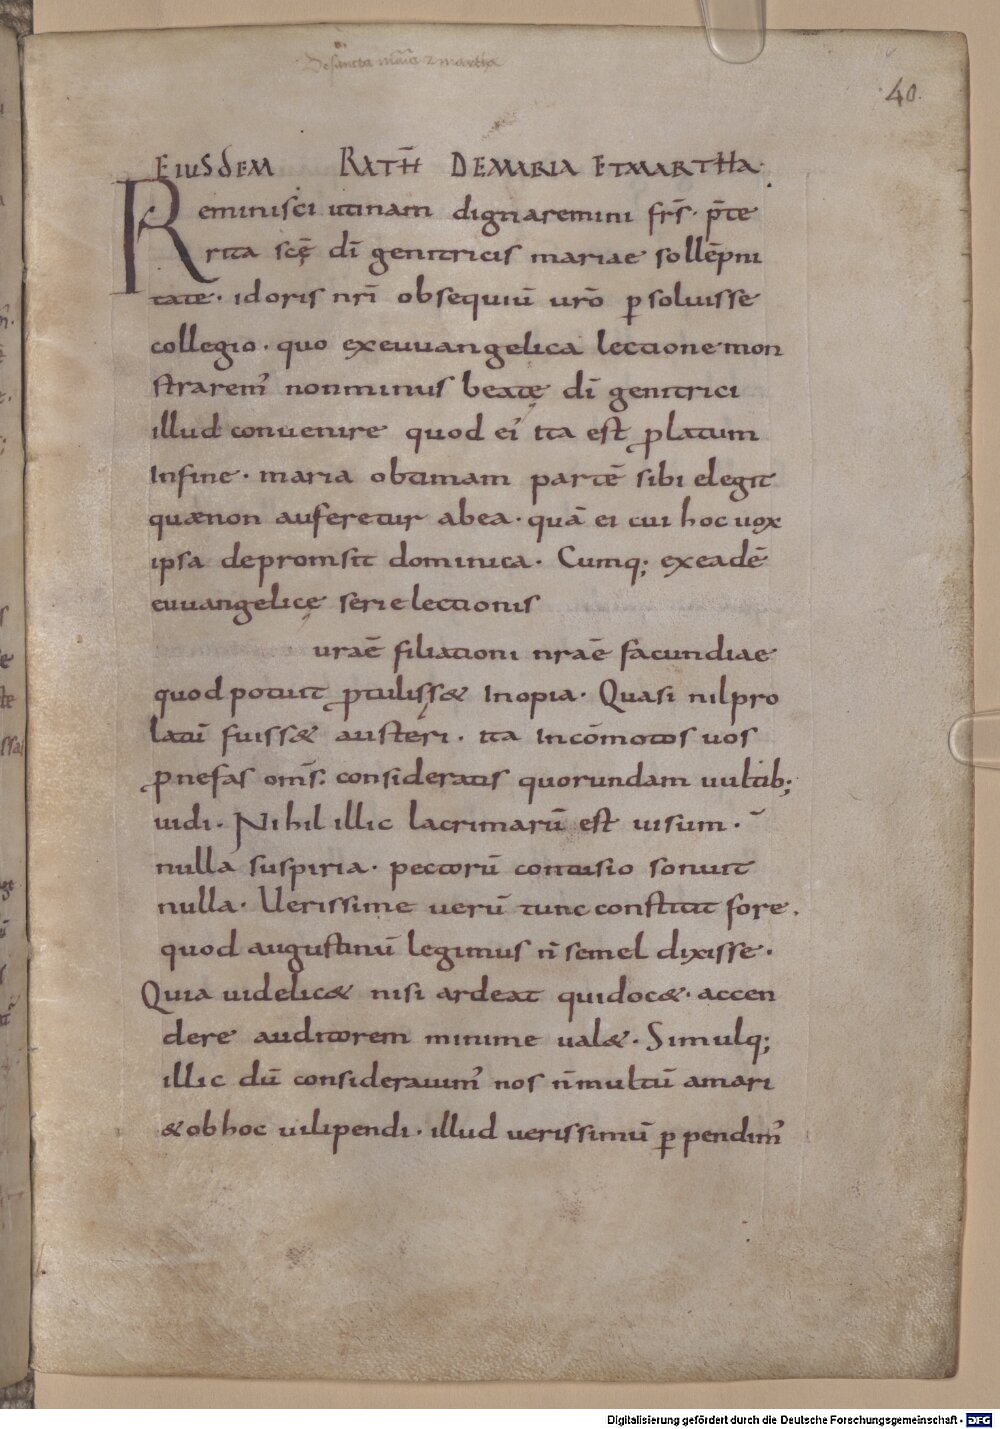 De sancta maria & martha
40.
EIUSDEM RATH̄ DE MARIA ET MARTHA.
Reminisci utinam dignaremini fr̄s. p̄te
rita sc̄ę dī genitricis mariae sollēpni
tate. id oris nr̄i obsequiū ur̄o ꝑsoluisse
collegio. quo ex euuangelica lectione mon
strarem᾿ non minus beatę dī genitrici
illud conuenire quod ei᾿ ita est ꝓlatum
In fine. maria obtimam partē sibi elegit
quæ non auferetur ab ea. quā ei cui hoc uox
ipsa depromsit dominica. Cumq; ex eadē
euuangelicę serie lectionis
uraē filiationi nraē facundiae
quod potuit ꝓtulissę& Inopia. Quasi nil pro
latū fuiss& austeri. ita Incōmotos uos
ꝓ nefas om̄s. consideratis quorundam uultib;
uidi. Nihil illic lacrimarū est uisum.
nulla suspiria. pectorū contusio sonuit
nulla. Uerissime uerū tunc constitit fore.
quod augustinū legimus n̄ semel dixisse.
Quia uidelic& nisi ardeat qui doc&. accen
dere auditorem minime ual&. Simulq;
illic dū considerauim᾿ nos n̄ multū amari
& ob hoc uilipendi. illud uerissimū ꝑpendim᾿
Digitalisierung gefördert durch die Deutsche Forschungsgemeinschaft - DFG